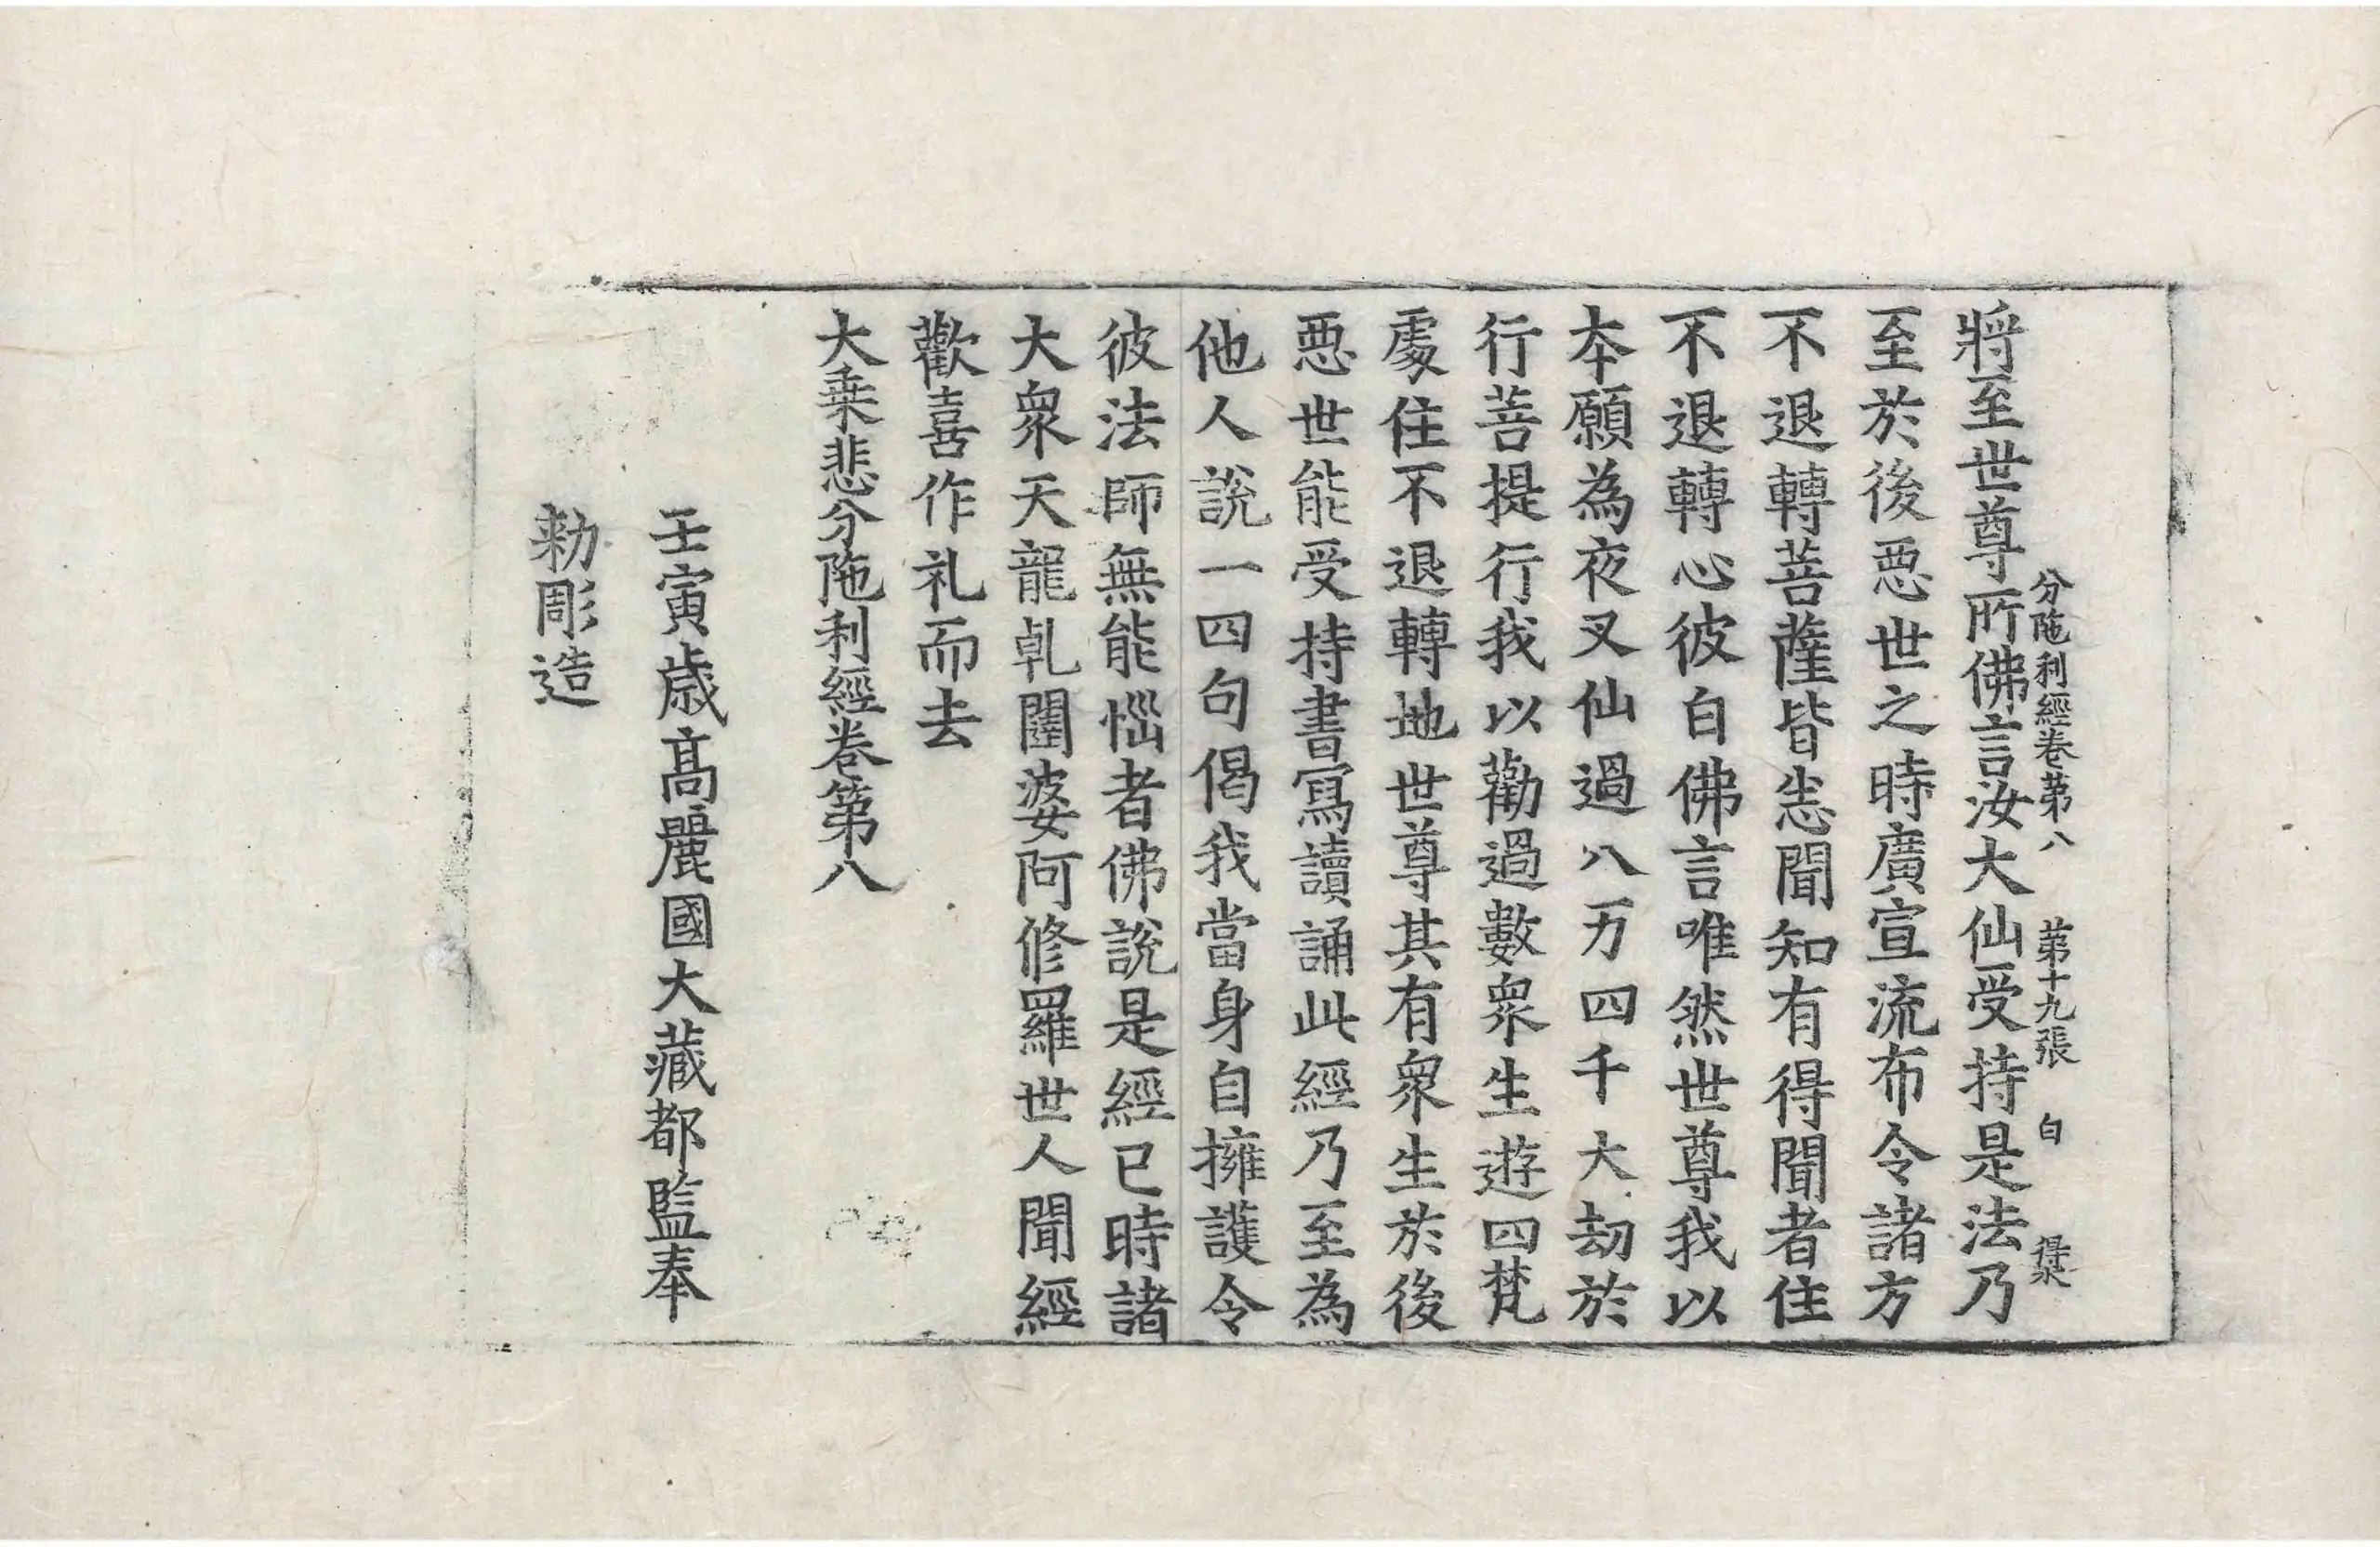 分陁利經卷第八 第十九張 白 得水
將至世尊所佛言汝大仙受持是法乃
至於後悪世之時廣宣流布令諸方
不退轉菩薩皆悉聞知有得聞者住
不退轉心彼白佛言唯然世尊我以
本願為夜叉仙過八万四千大劫於
行菩提行我以勸過數衆生遊四梵
處住不退轉地世尊其有衆生於後
悪世能受持書寫讀誦此經乃至為
他人說一四句偈我當身自擁護令
彼法師無能惱者佛說是經已時諸
大衆天龍乹闥婆阿修羅世人聞經
歡喜作礼而去
大乗悲分陁利經卷第八
壬寅歳高麗國大藏都監奉
勑彫造